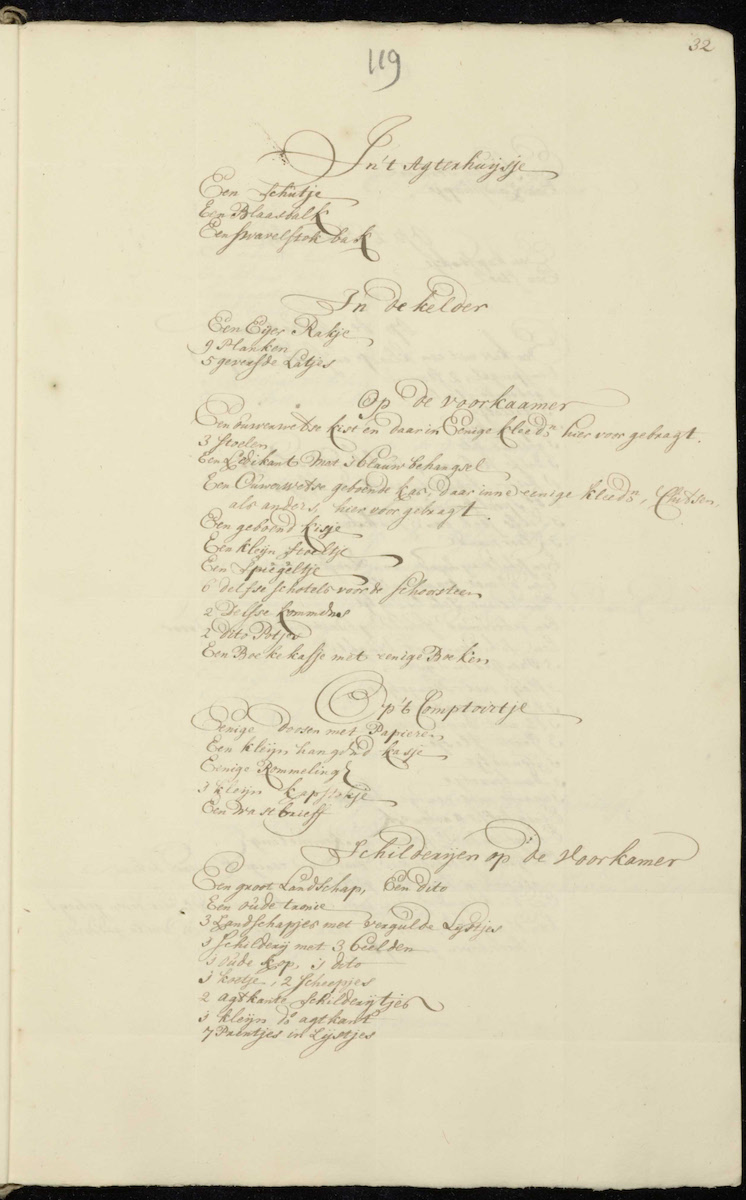 32
119
In't Agterhuijsje
Een schutje
Een Blaasbalk
Een swavelstok bak
In de kelder
Een Eijer Rakje
9 Planken
5 geverfde Latjes
Op de voorkaamer
Een ouwerwetse kist en daar in Eenige kleedn hier voor gebragt.
3 stoelen
Een Ledikant met 1 blauw behangsel
Een Ouwerwetse geboende kas, daar inne eenige kleedn,
als anders, hier voor gebragt.
Een geboend kisje
Een kleijn stoeltje
Een spiegeltje
6 delfse schotels voor de schoorsteen
2 Delfse kommen
2 dito Potjes
Een Boeke kasje met eenige Boeken
Op 't Comptoirtje
Eenige doosen met Papieren
Een kleijn hangend kasje
Eenige Rommeling
1 kleijn kapstokje
Een
Schilderijen op de Voorkamer
Een groot Landschap, Een dito
Een oude tronie
3 Landschapjes met vergulde Lystjes
1 schilderij met 3 beelden
1 oude kop, 1 dito
1 2 scheepjes
2 agtkante schilderijtjes
1 kleijn do agtkant
7 Printjes in Lijstjes